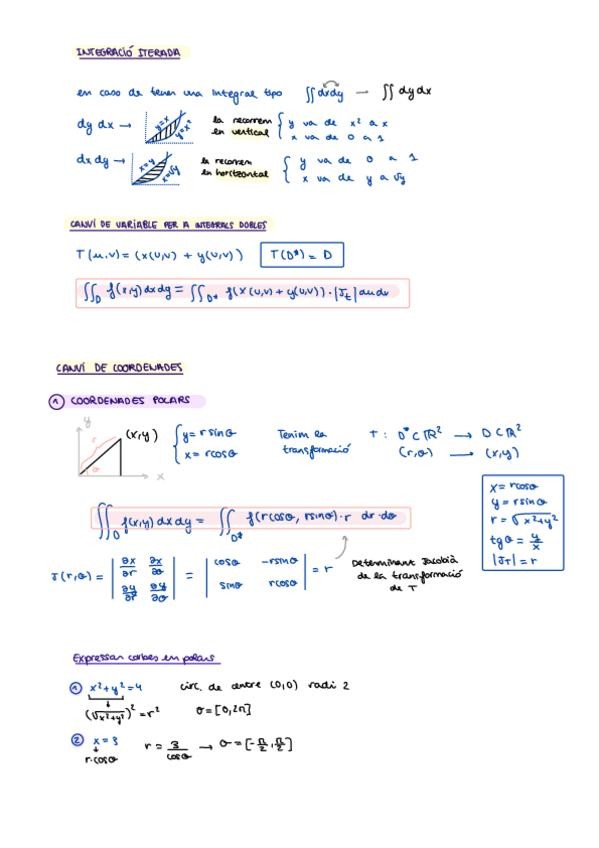 INTEGRACIÓ ITERADA
en caso de tener una integral tipo ∬ dxdy → ∬ dy dx
dy dx → y=x y=x² la recorrem en vertical { y va de x² a x
x va de 0 a 1
dx dy → x=y x=√y la recorrem en horitzontal { y va de 0 a 1
x va de y a √y
CANVI DE VARIABLE PER A INTEGRALS DOBLES
T(u,v) = (x(u,v) + y(u,v)) T(D*) = D
∬_D f(x,y) dx dy = ∬_D* f(x(u,v) + y(u,v)) · |J_t| du dv
CANVI DE COORDENADES
① COORDENADES POLARS
y r θ x (x,y) { y = r sinθ
x = r cosθ
Tenim la transformació T : D* ⊂ ℝ² → D ⊂ ℝ²
(r,θ) → (x,y)
x = rcosθ
y = rsinθ
r = √x²+y²
tgθ = y/x
|J_T| = r
∬_D f(x,y) dx dy = ∬_D* f(rcosθ, rsinθ) · r dr·dθ
J(r,θ) = | ∂x/∂r ∂x/∂θ | = | cosθ -rsinθ | = r
| ∂y/∂r ∂y/∂θ | | sinθ rcosθ |
Determinant Jacobià
de la transformació
de T
Expressar corbes en polars
① x²+y²=4 circ. de centre (0,0) radi 2
(√x²+y²)² = r² θ = [0,2π]
② x = 3 r = 3/cosθ → θ = [-π/2, π/2]
r·cosθ